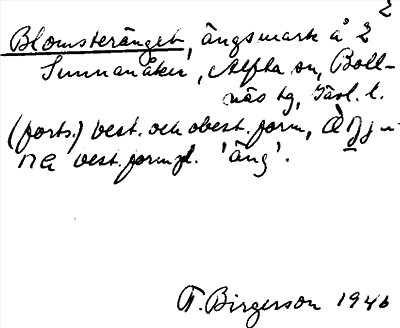 2
Blomsteränget, ängsmark å 2
Sunnanåker, Alfta sn, Boll-
näs tg, Gävl. l.
(forts.) best. och obest. form,
na best. form pl. 'äng'.
T. Birgerson 1946